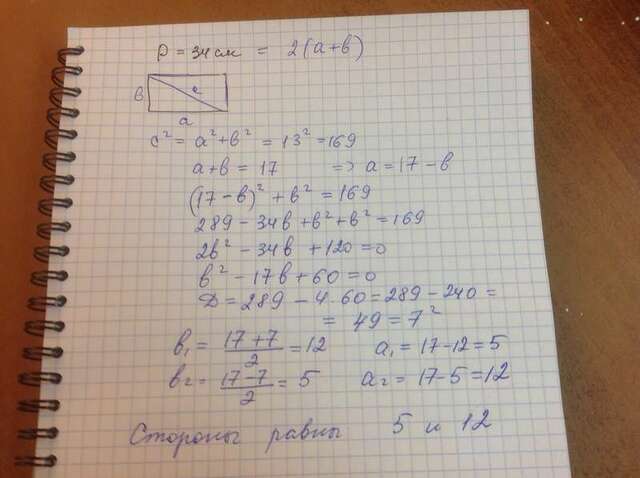 P = 34 см = 2(a+в)
в c
a
c² = a² + в² = 13² = 169
a+в = 17 => a = 17 - в
(17 - в)² + в² = 169
289 - 34в + в² + в² = 169
2в² - 34в + 120 = 0
в² - 17в + 60 = 0
Д = 289 - 4·60 = 289 - 240 =
= 49 = 7²
в₁ = (17 + 7)/2 = 12 a₁ = 17 - 12 = 5
в₂ = (17 - 7)/2 = 5 a₂ = 17 - 5 = 12
Стороны равны 5 и 12